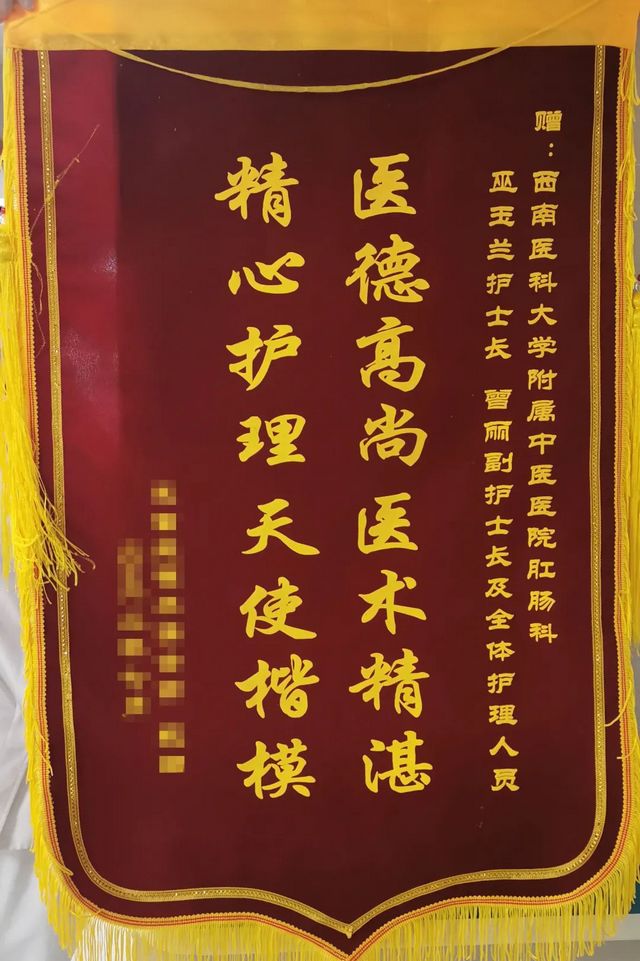 赠：西南医科大学附属中医医院肛肠科
巫玉兰护士长 曾丽副护士长及全体护理人员
医德高尚医术精湛
精心护理天使楷模